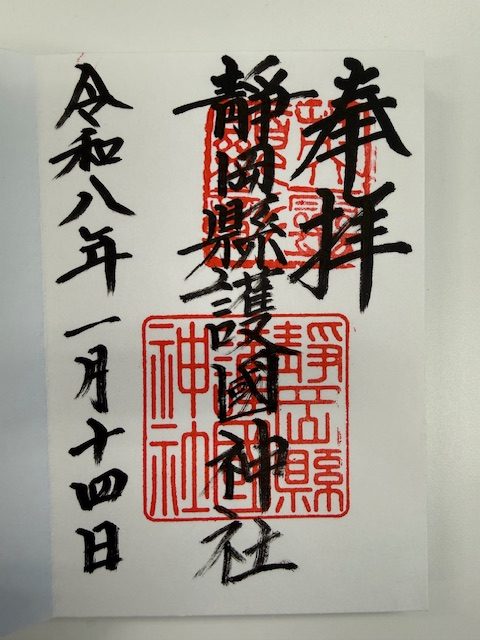 奉拝
靜岡縣護國神社
令和八年一月十四日
靜岡縣
護國
神社